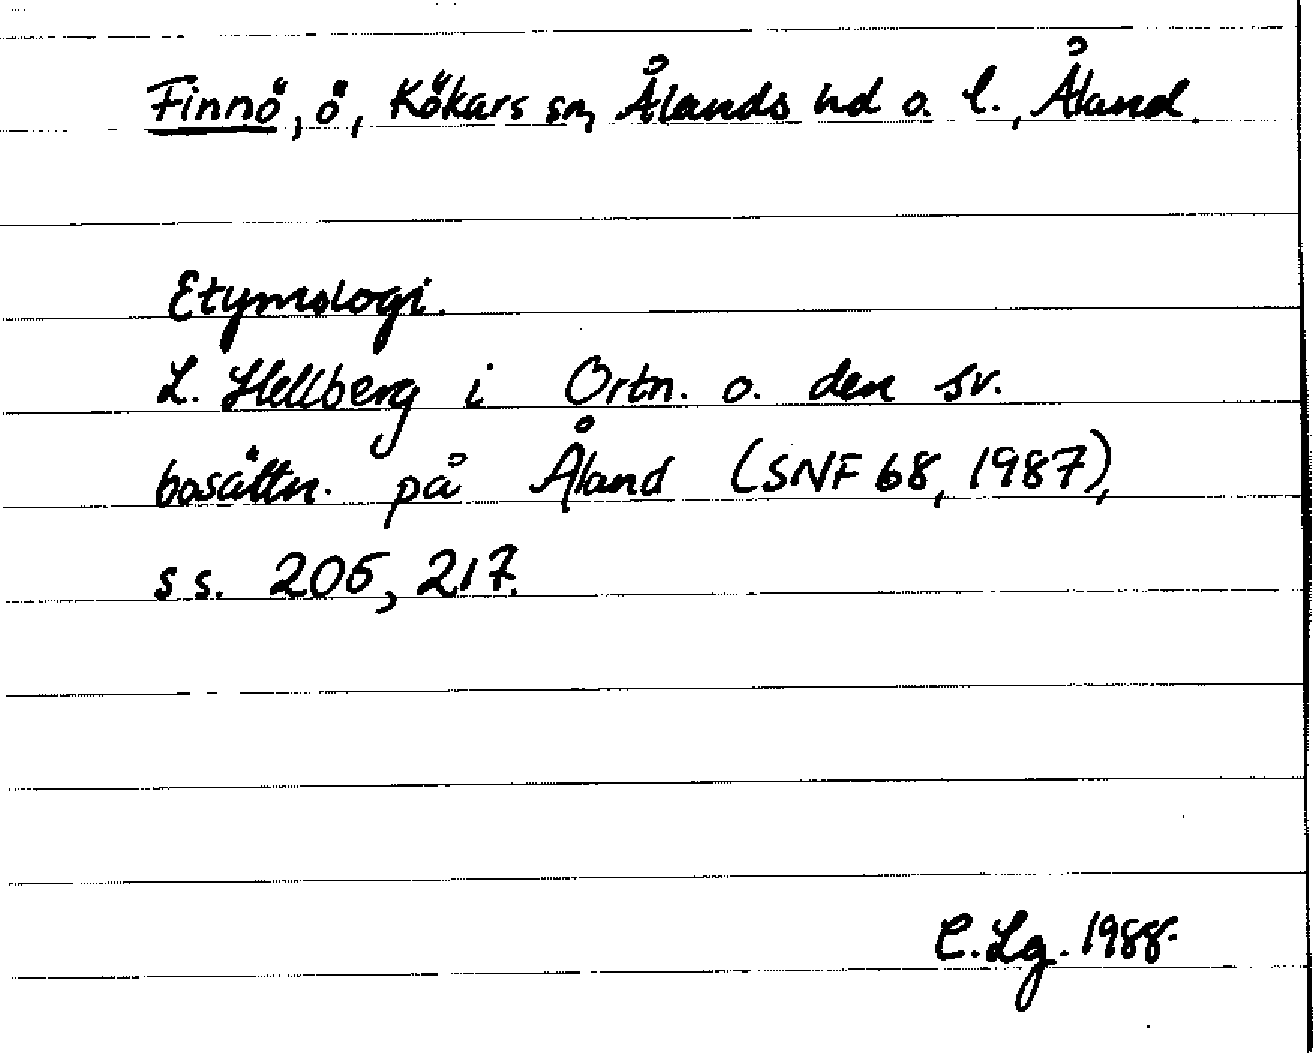 Finnö, ö, Kökars sn, Ålands hd o. l., Åland.
Etymologi.
L. Hellberg i Ortn. o. den sv.
bosättn. på Åland (SNF 68, 1987),
ss. 206, 217.
C. Lg. 1988.